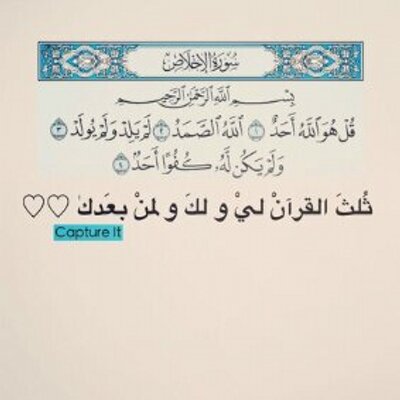 سُورَةُ الإِخْلَاصِ
بِسْمِ اللَّهِ الرَّحْمَٰنِ الرَّحِيمِ
قُلْ هُوَ اللَّهُ أَحَدٌ ١ اللَّهُ الصَّمَدُ ٢ لَمْ يَلِدْ وَلَمْ يُولَدْ ٣
وَلَمْ يَكُن لَّهُ كُفُوًا أَحَدٌ ٤
ثُلثَ القرآنْ ليْ و لكَ و لمنْ بعَدكْ ♡♡
Capture It